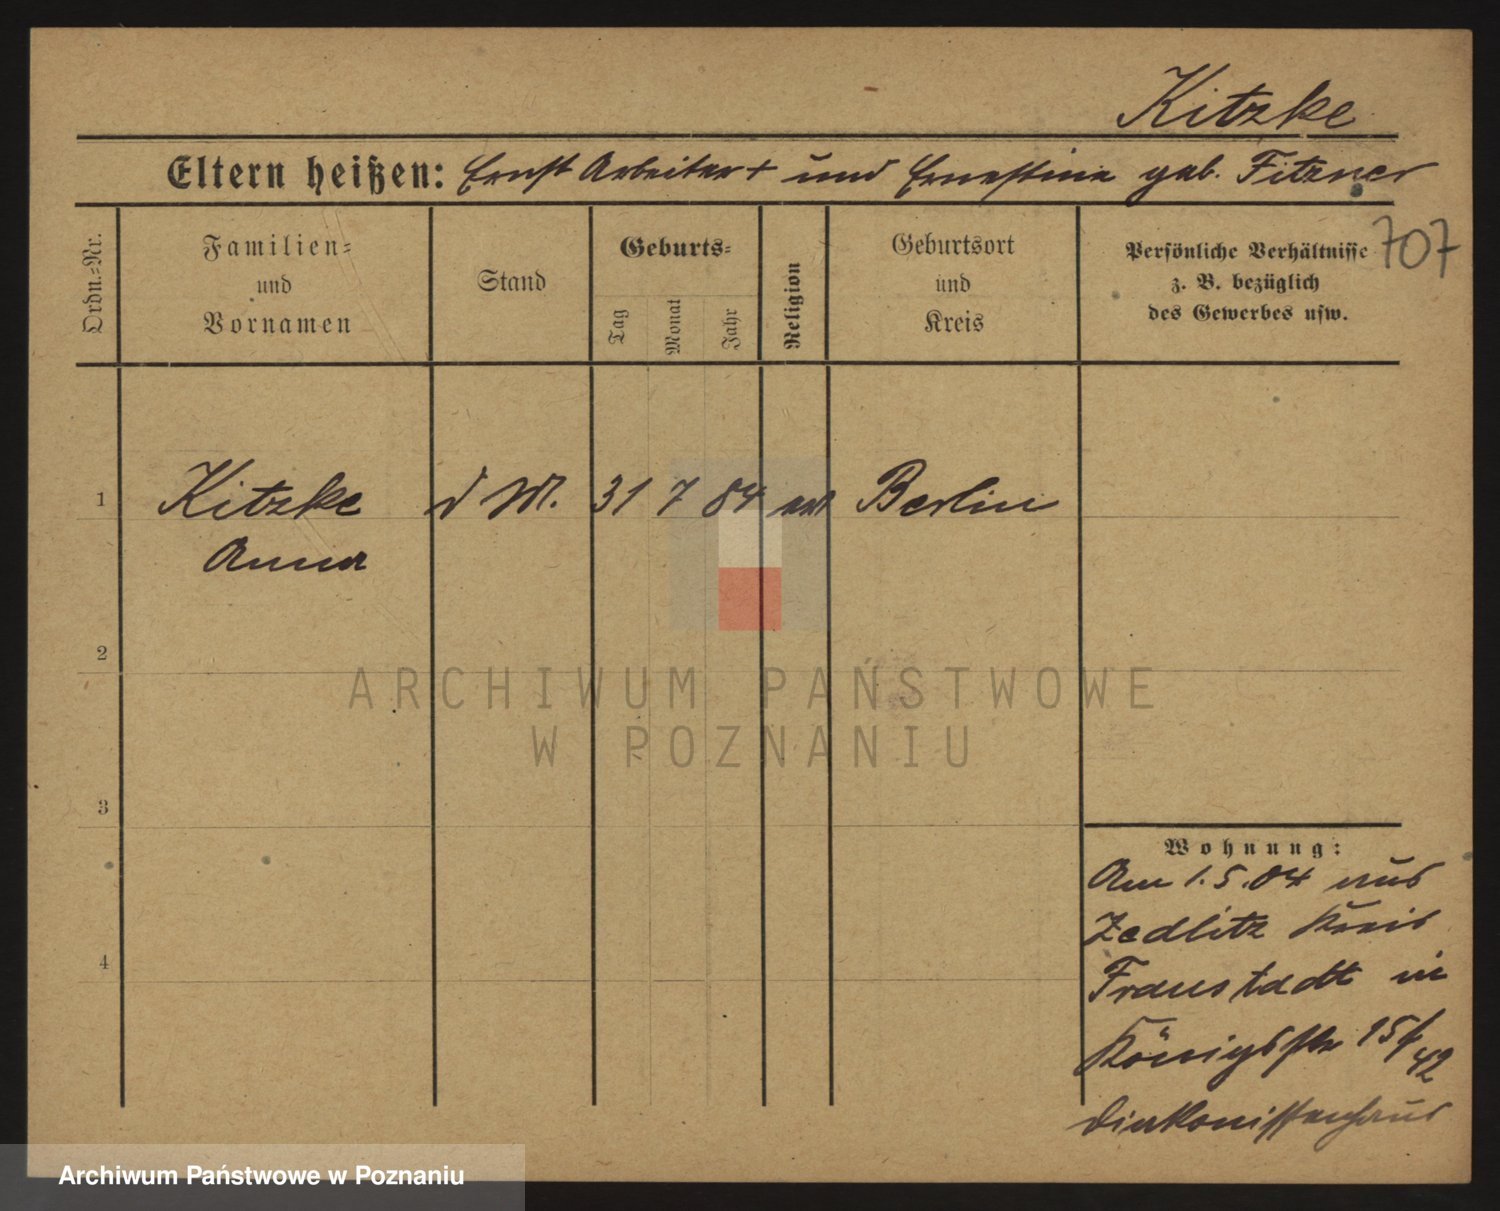 Kitzke
Eltern heißen: Ernst Arbeiter + und Ernestine geb. Fitzner
707
Ordn.-Nr.
Familien- und Vornamen
Stand
Geburts-
Tag
Monat
Jahr
Religion
Geburtsort und Kreis
Persönliche Verhältnisse
z. B. bezüglich
des Gewerbes usw.
1
Kitzke d M. 31 7 84 Berlin
Anna
2
ARCHIWUM PAŃSTWOWE
W POZNANIU
3
Wohnung:
Am 1.5.04 aus
Zedlitz Kreis
Fraustadt in
4
Königsstr 15/
42
Diakonissenhaus
Archiwum Państwowe w Poznaniu